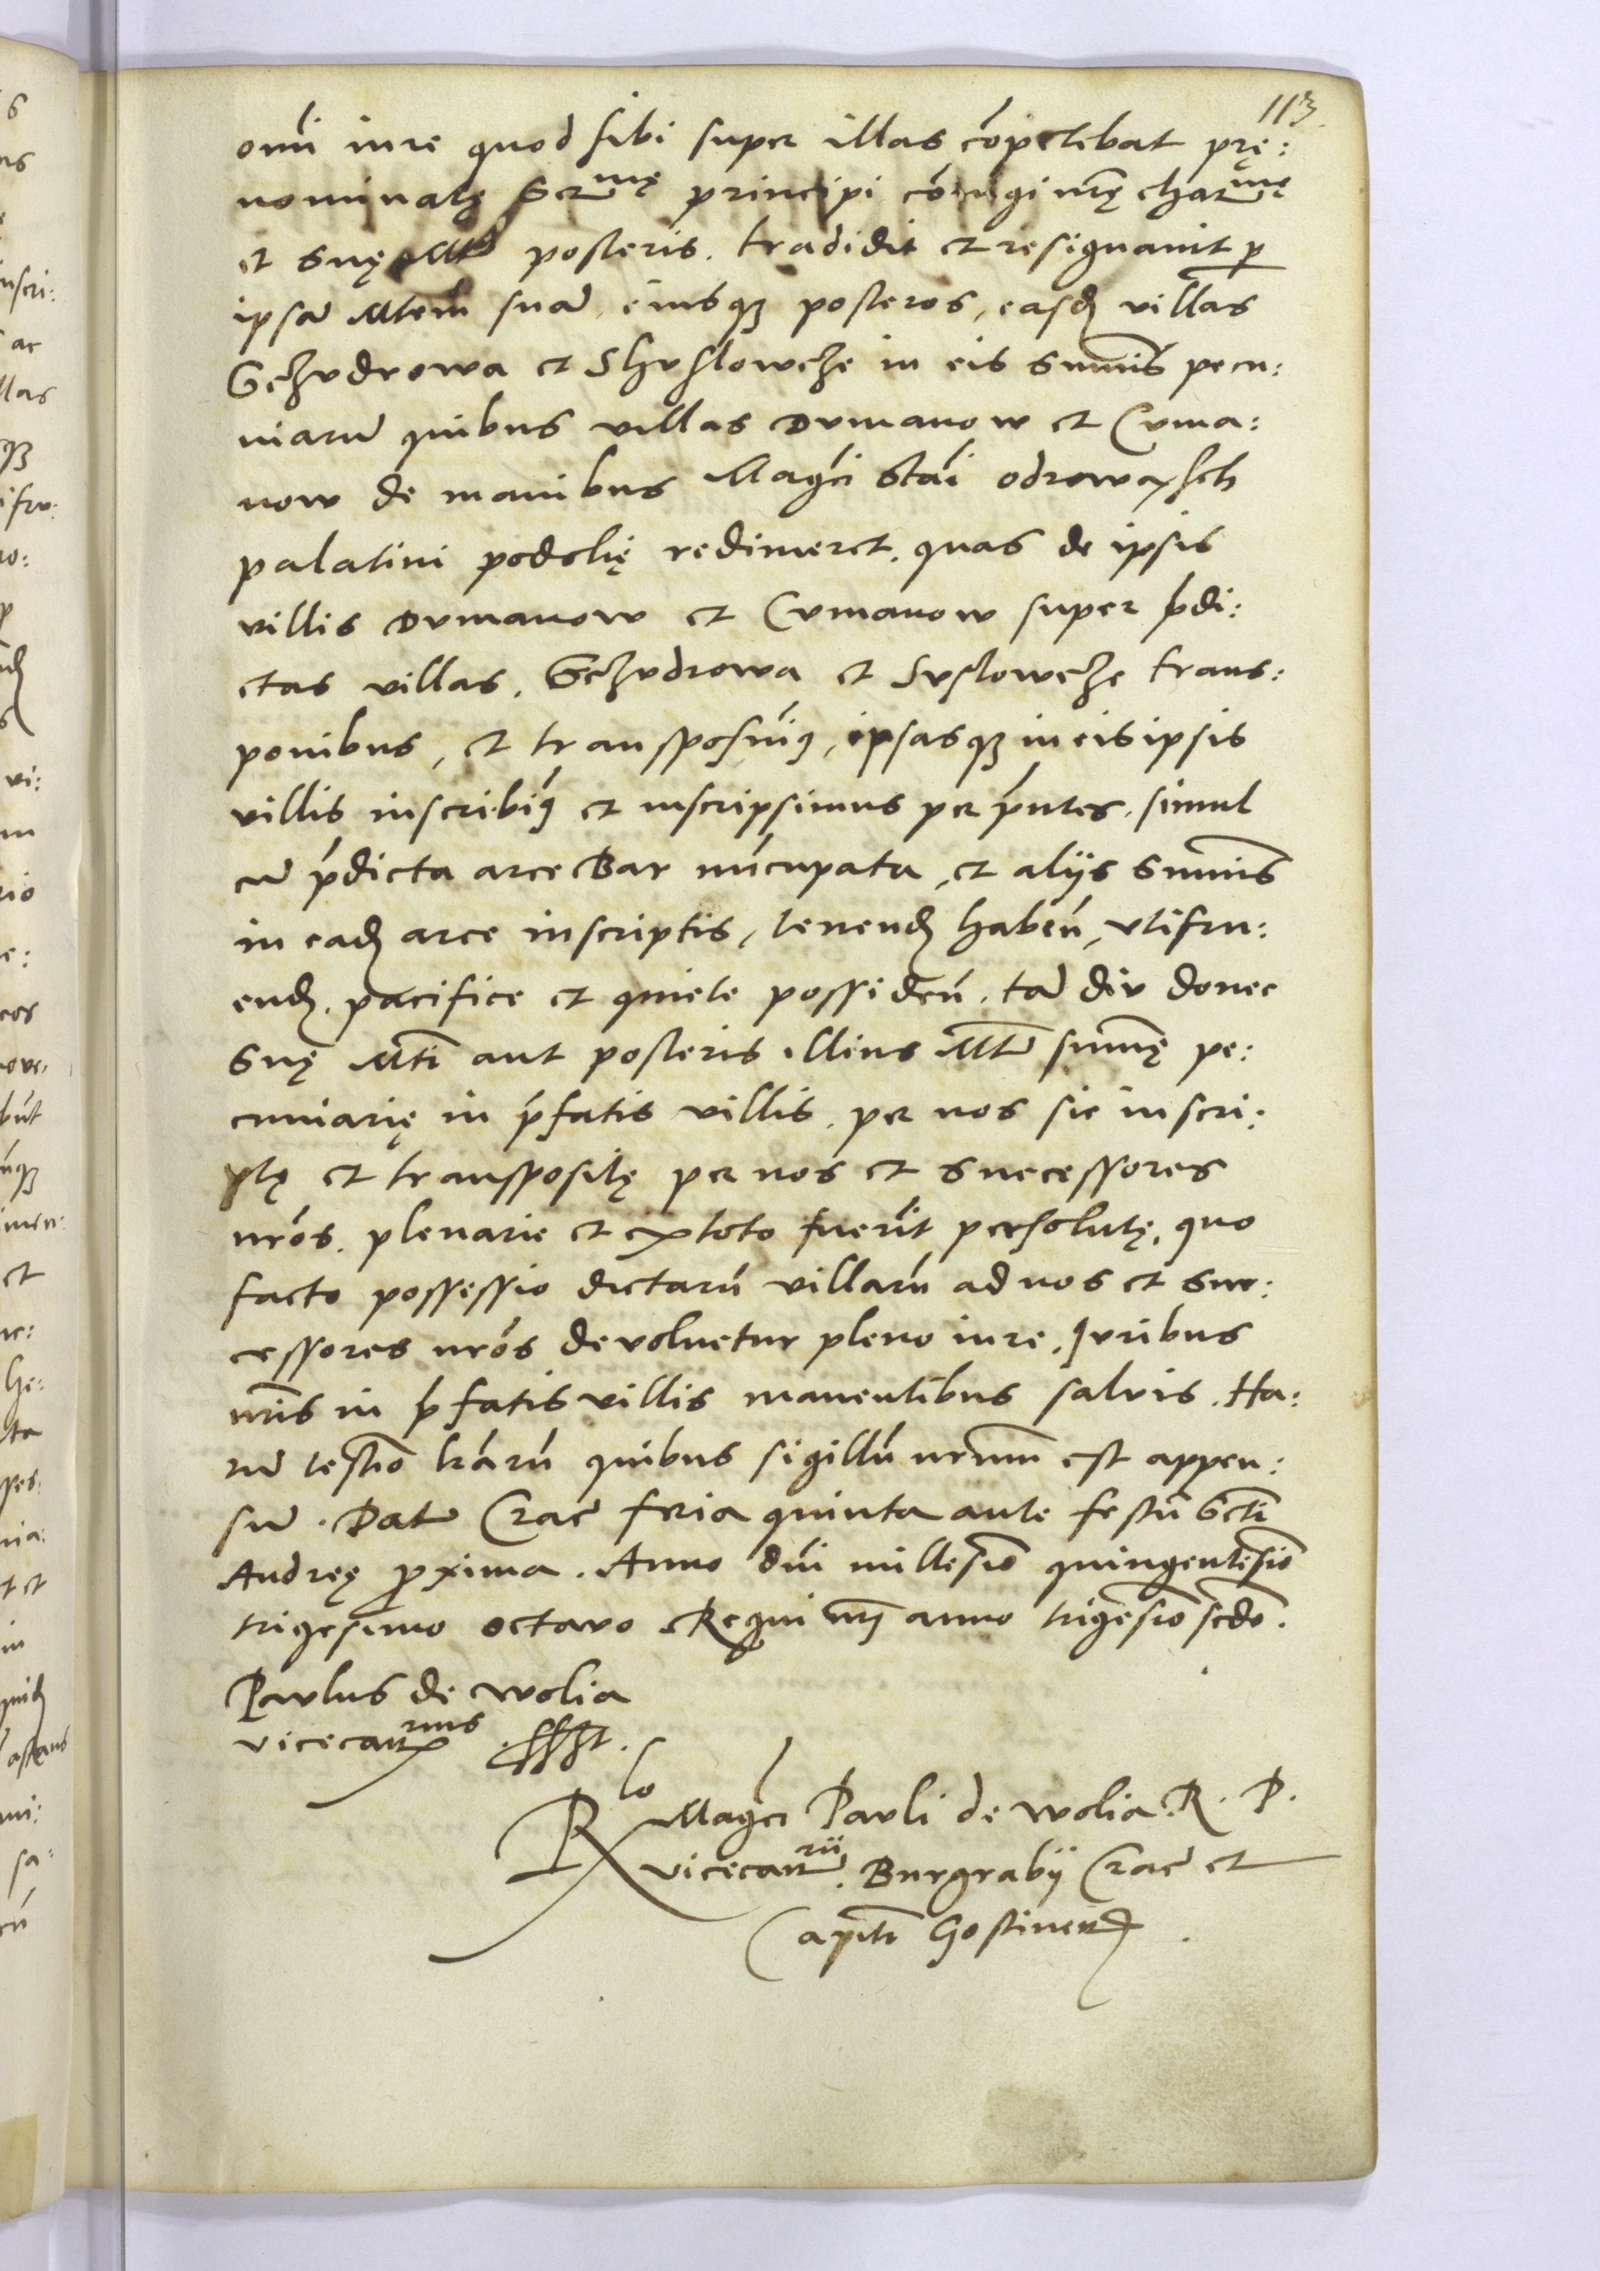 113
omī iure quod sibi super illas cōpetebat prę:
nominatę Serᵐᵉ principi cōiugi nr̄ę charᵐᵉ
et suę Mtis posteris. tradidit et resignauit p
ipsā Mtem suā, eiusqȝ posteros, easdē villas
Gczvdrowa et Shvslowcze in eis sum̄is pecu:
niarū quibus villas Dvmanow et Cvma:
now de manibus Mag̅ci Stāi odrowasch
palatini podolię redimeret. quas de ipsis
villis Dvmanow et Cvmanow super p̄di:
ctas villas. Gczvdrowa et Svslowcze trans:
ponibus, et transposuiꝰ, ipsasqȝ in eis ipsis
villis inscribiꝰ et inscripsimus per pn̄tes. simul
cū p̄dicta arce Bar nūcupata, et alijs sum̄is
in eadē arce inscriptis, tenendā habeñ, vtifru:
endā. pacifice et quiete possideñ. tā div donec
suę Mti aut posteris illius Mtis sum̄ę pe:
cuniarię in p̄fatis villis. per nos sic inscri:
ptę et transpositę per nos et successores
nr̄os. plenarie et ex toto fuerīt persolutę, quo
facto possessio dictarū villarū ad nos et suc:
cessores nr̄os devoluetur pleno iure. Iuribus
nr̄is in p̄fatis villis manentibus salvis. Ha:
rū testīo lr̄arū quibus sigillū nr̄um est appen:
sū. Dat Crac̄ feria quinta ante festū Scti
Andreę ꝓxima. Anno dn̄i millesīo quingentesīo
trigesimo octavo Regni nr̄i anno trigesīo scdo.
Pavlus de wolia
vicecanᶜʳⁱᵘˢ sspt.
Rlo Mag̅ci Pavli de wolia R. P.
vicecanrii. Burgrabij Crac̄ et
Capitī Gostineñ.